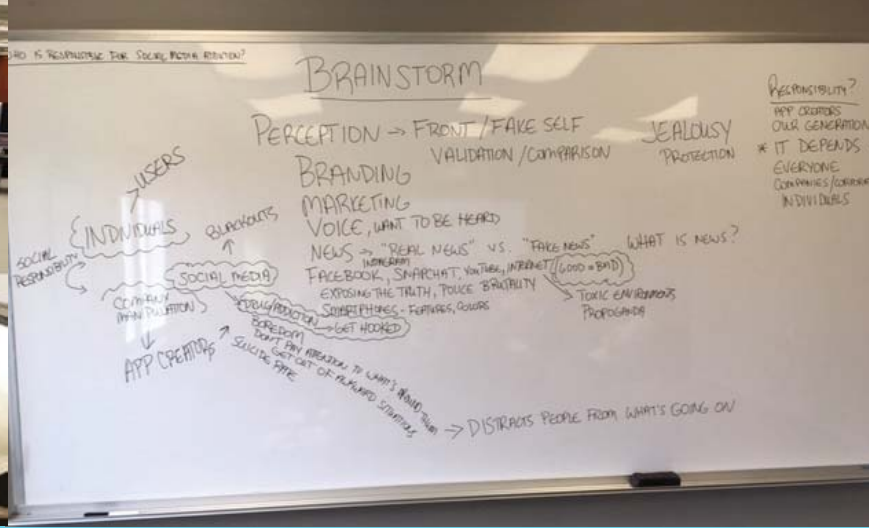 WHO IS RESPONSIBLE FOR SOCIAL MEDIA ADDICTION?
BRAINSTORM
PERCEPTION → FRONT/FAKE SELF
VALIDATION/COMPARISON
JEALOUSY
PROTECTION
BRANDING
MARKETING
VOICE, WANT TO BE HEARD
NEWS → "REAL NEWS" VS. "FAKE NEWS" WHAT IS NEWS?
INSTAGRAM
FACEBOOK, SNAPCHAT, YOUTUBE, INTERNET (GOOD = BAD)
EXPOSING THE TRUTH, POLICE BRUTALITY
SMARTPHONES - FEATURES, COLORS
→ TOXIC ENVIRONMENTS
PROPOGANDA
USERS
INDIVIDUALS
SOCIAL RESPONSIBILITY
BLACKOUTS
SOCIAL MEDIA
COMPANY MANIPULATION
APP CREATORS
DRUG/ADDICTION
→ GET HOOKED
BOREDOM
DON'T PAY ATTENTION TO WHAT'S AROUND THEM
GET OUT OF AWKWARD SITUATIONS
SUICIDE RATE
→ DISTRACTS PEOPLE FROM WHAT'S GOING ON
RESPONSIBILITY?
APP CREATORS
OUR GENERATION
* IT DEPENDS
EVERYONE
COMPANIES/
INDIVIDUALS